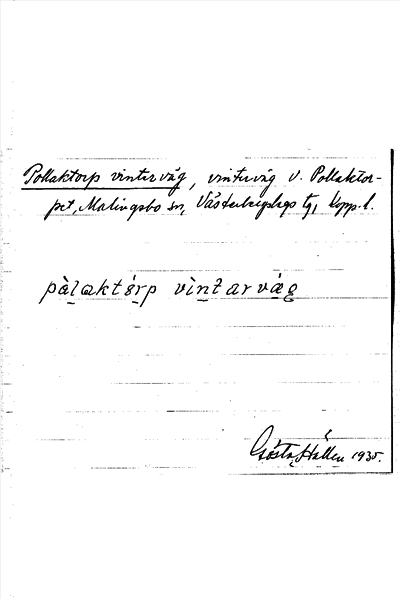 Pollaktorp vinterväg, vinterväg v. Pollaktor-
pet, Malingsbo sn, Västerbergslags tg, Kopp. l.
pàlaktórp vìntarvág
Gösta Hallén 1935.